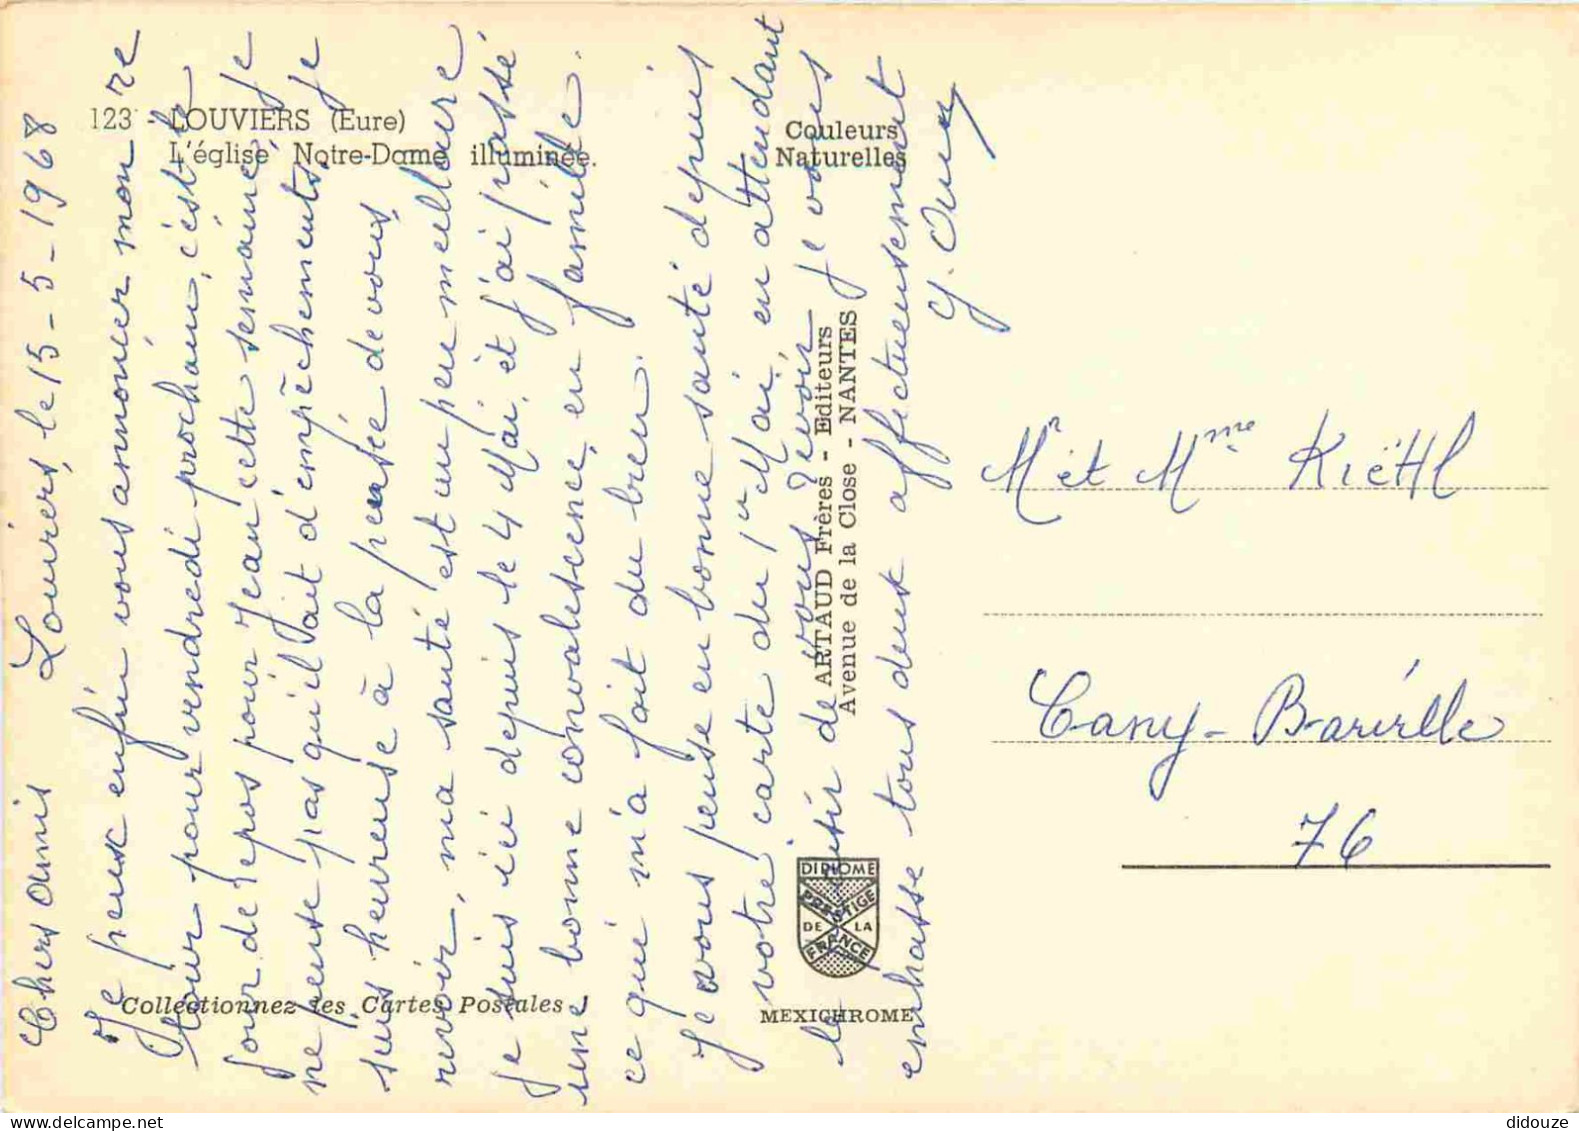 Louviers, le 15-5-1968
Chers Amis
Je peux enfin vous annoncer mon re
tour pour vendredi prochain, c'est le
jour de repos pour Jean cette semaine, je
ne pense pas qu'il ait d'empêchements, je
suis heureuse à la pensée de vous
revoir, ma santé est un peu meilleure
je suis ici depuis le 4 Mai, et j'ai passé
une bonne convalescence, en famille.
ce qui m'a fait du bien.
Je vous pense en bonne santé depuis
votre carte du 1er Mai, en attendant
le plaisir de vous revoir je vous
embrasse tous deux affectueusement
123 - LOUVIERS (Eure)
L'église Notre-Dame illuminée.
Couleurs
Naturelles
ARTAUD Frères - Editeurs
Avenue de la Close - NANTES
DIPLOME
PRESTIGE
DE LA
FRANCE
Collectionnez les Cartes Postales !
MEXICHROME
Mr et Mme Kiëffl
Cany-Barville
76
didouze